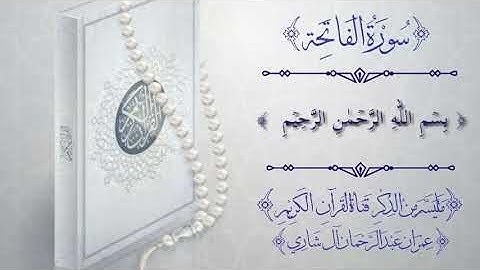 ﴿سُورَةُ الفَاتِحَة﴾
﴿ بِسْمِ اللَّهِ الرَّحْمَٰنِ الرَّحِيمِ ﴾
﴿مَاتَيَسَّرَ مِنَ الذِّكْرِ قَنَاةُ القُرْآنِ الكَرِيمِ﴾
﴿عِمْرَان عَبْدُ الرَّحْمَان آل شَارِي﴾
القرآن الكريم